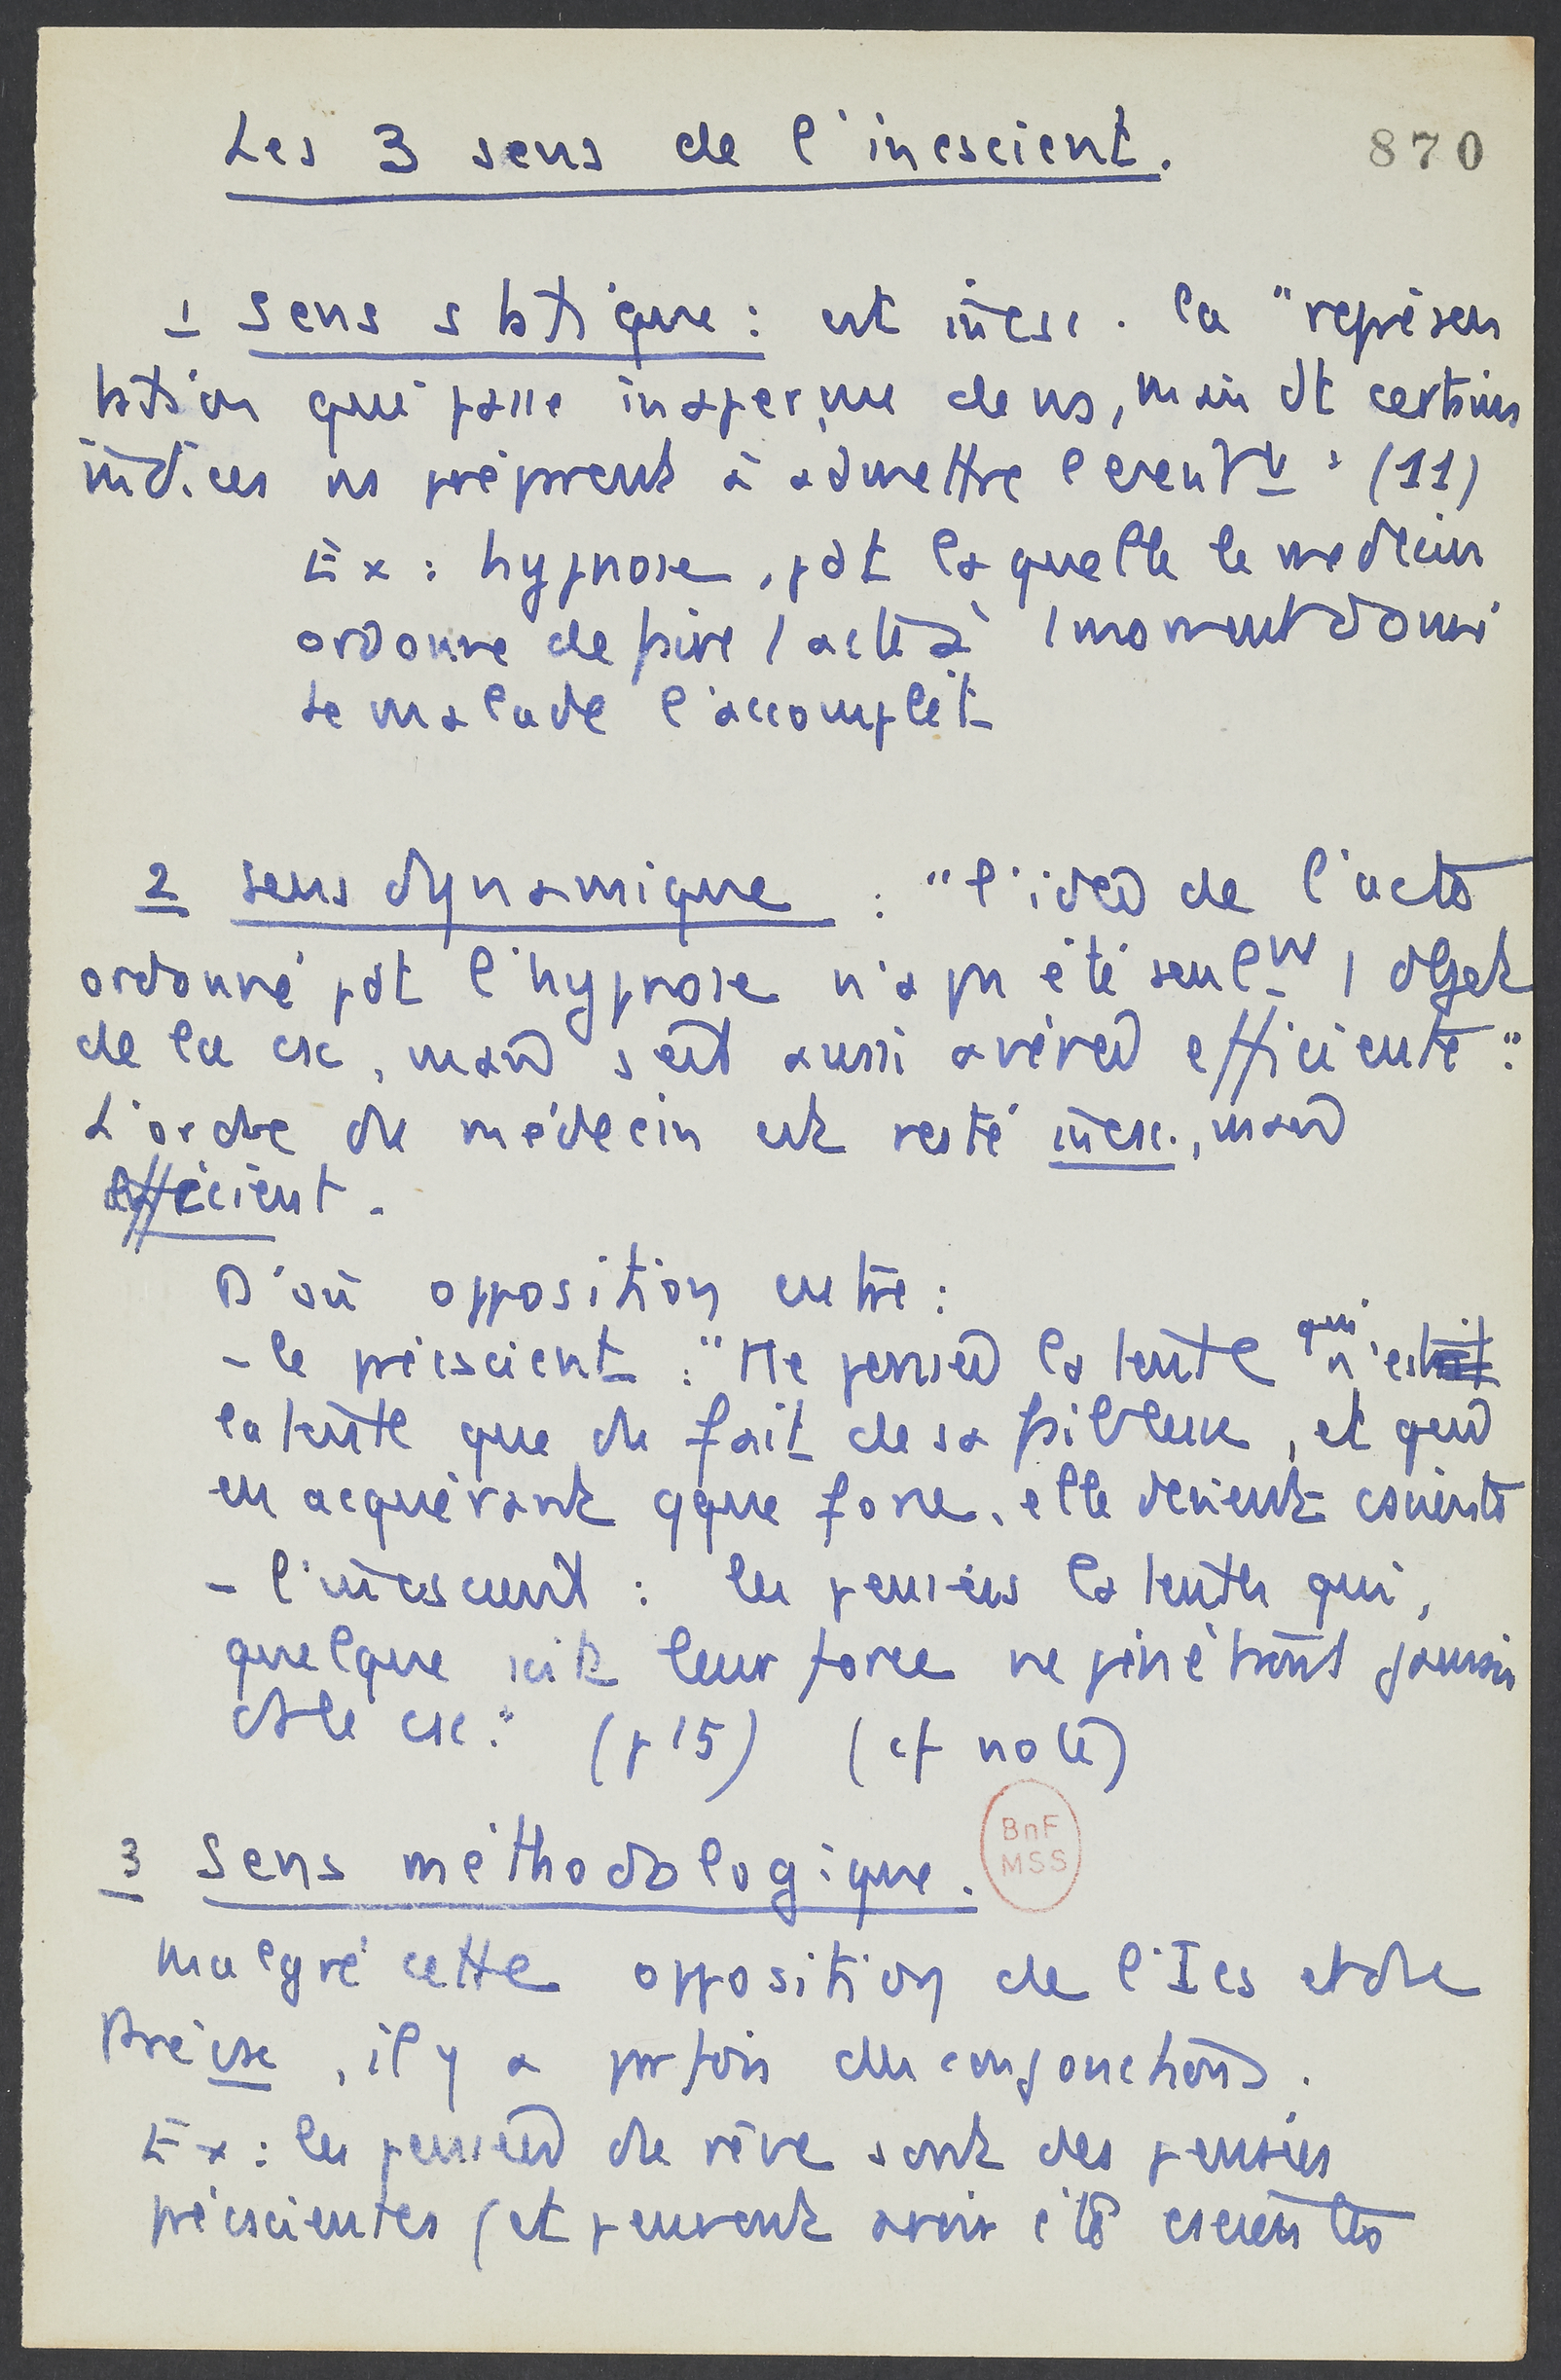 Les 3 sens de l'incscient.
870
1 Sens statique : est incsc. la "représen
tation qui passe inaperçue de ns, mais dt certains
indices ns préparent à admettre l'exent" (11)
Ex : hypnose, pdt laquelle le médecin
ordonne de faire 1 acte à 1 moment donné
Le malade l'accomplit
2 sens dynamique : "l'idée de l'acte
ordonné pdt l'hypnose n'a pas été seult 1 objet
de la csc, mais s'est aussi avérée efficiente".
L'ordre du médecin est resté incsc., mais
efficient.
D'où opposition entre :
- le précscient : "Une pensée latente qui n'est
latente que du fait de sa faiblesse, et qui
en acquérant qque force, elle devient csciente
- l'incscient : les pensées latentes qui,
quelque soit leur force ne pénètrent jamais
ds le csc." (p 15) (cf note)
3 Sens méthodologique.
BnF
MSS
Malgré cette opposition de l'Ics et du
Précsc, il y a parfois des conjonctions.
Ex : les pensées du rêve sont des pensées
précscientes (et peuvent avoir été cscientes